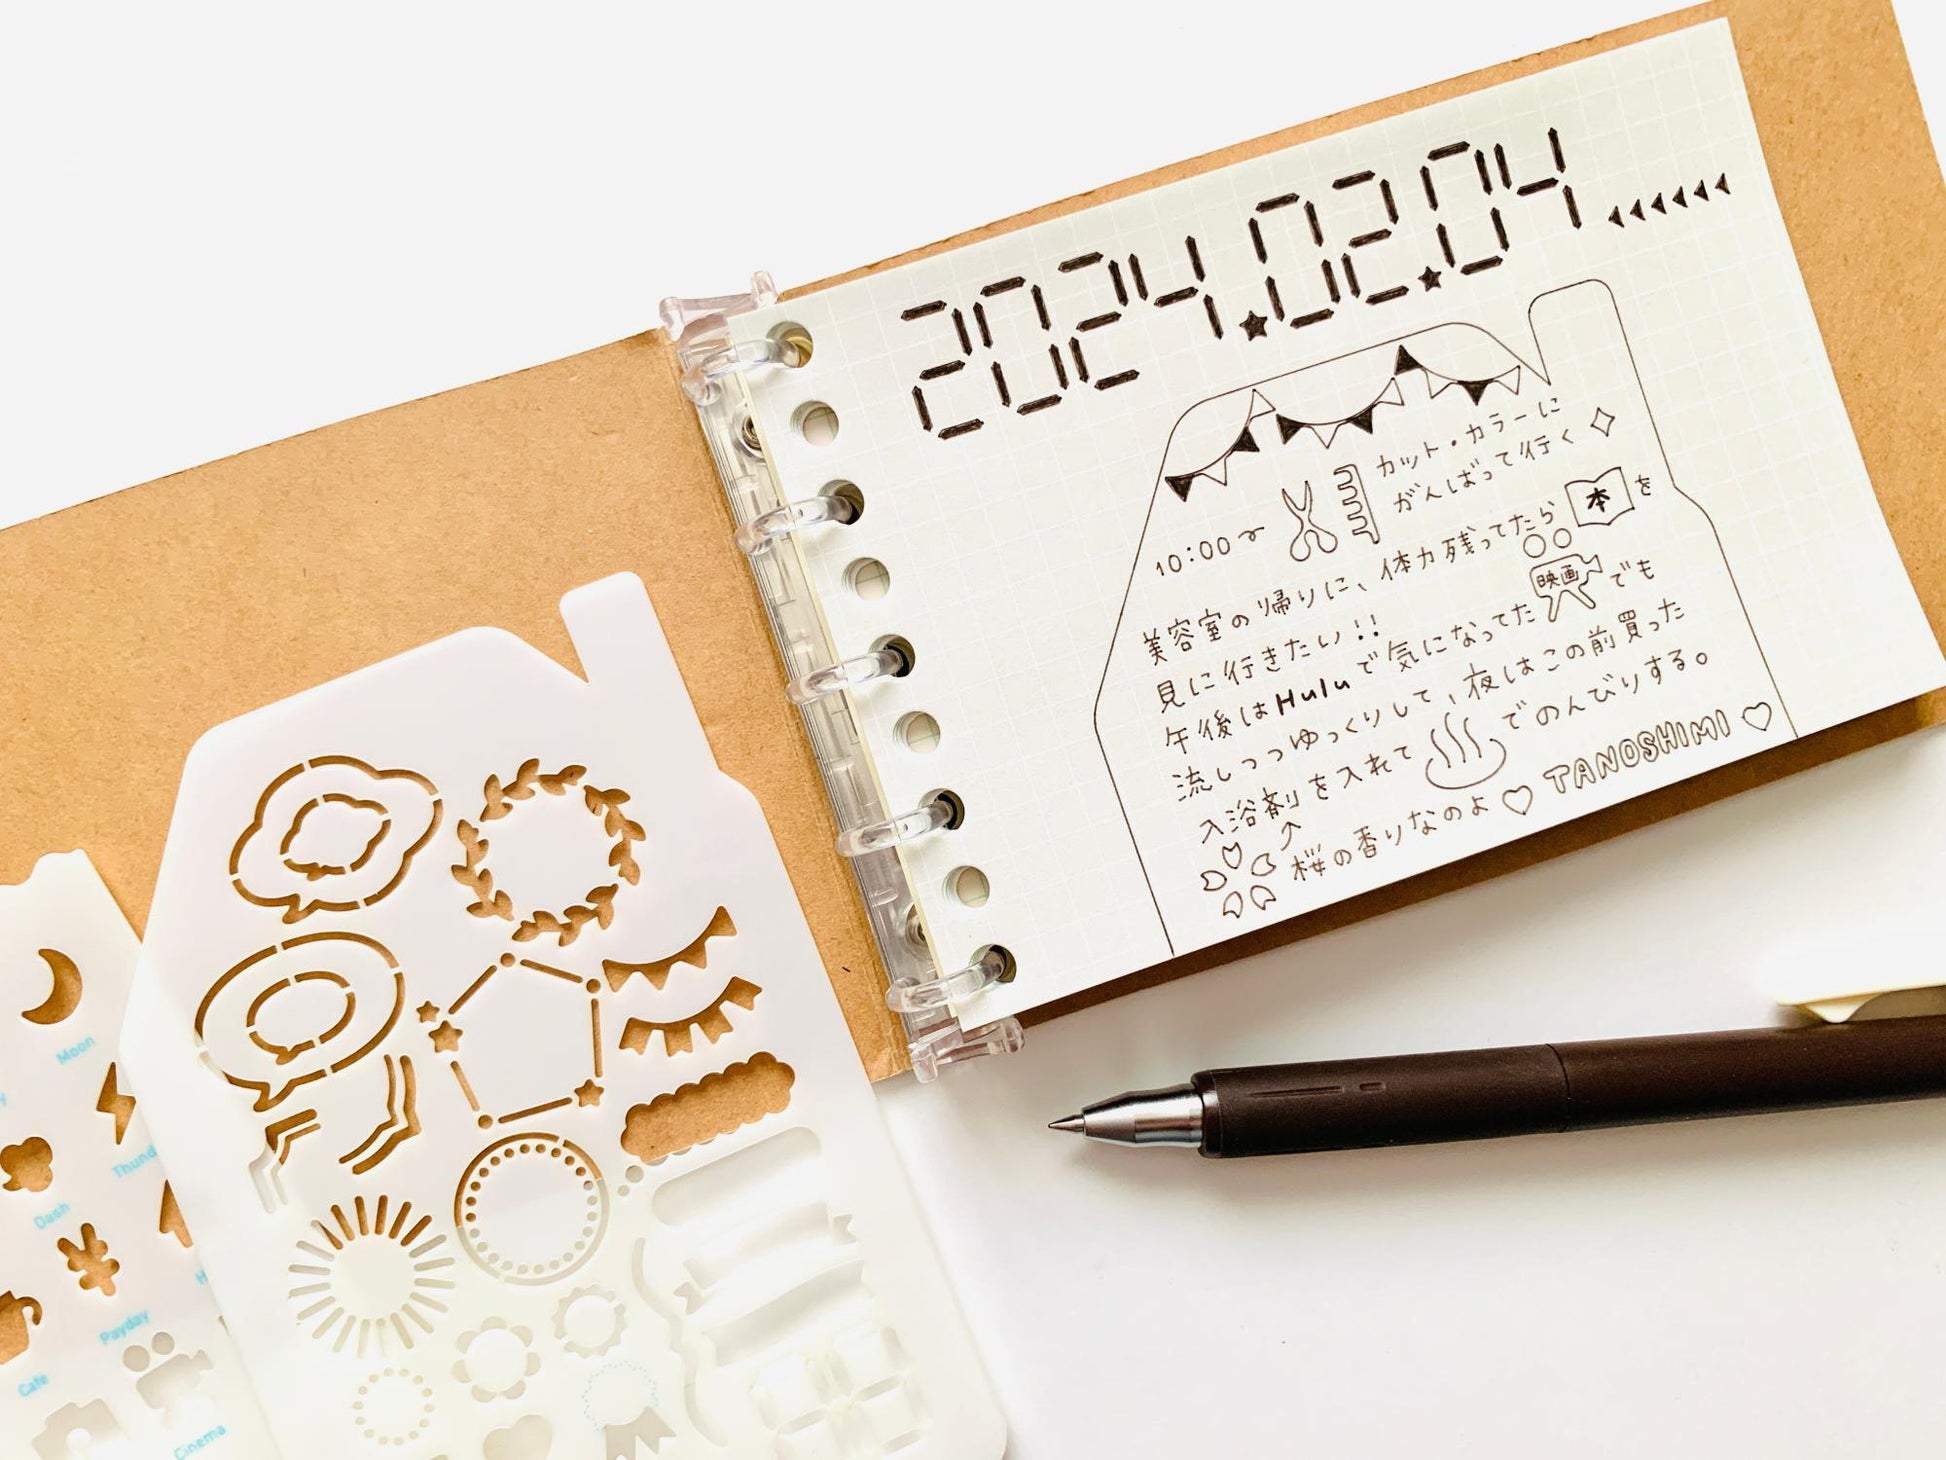 2024.02.04
カット・カラーに
がんばって行く
10:00〜
美容室の帰りに、体力残ってたら 本 を
見に行きたい!!
午後はHuluで気になってた 映画 でも
流しつつゆっくりして、夜はこの前買った
入浴剤を入れて でのんびりする。
桜の香りなのよ♡ TANOSHIMI♡
Moon
Thund
Dash
Payday
Cafe
Cinema